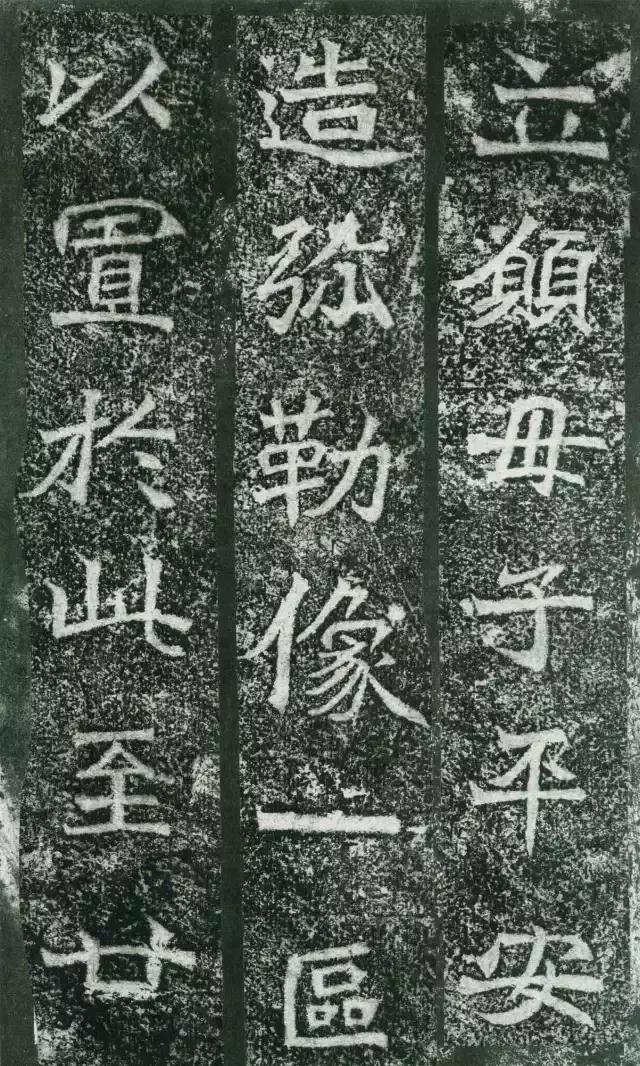 立願母子平安
造弥勒像一區
以置於此至廿